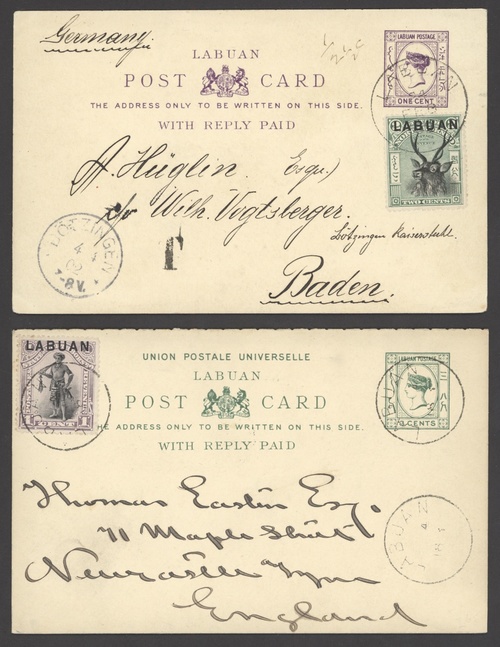 Germany.
LABUAN
POST CARD
THE ADDRESS ONLY TO BE WRITTEN ON THIS SIDE.
WITH REPLY PAID
LABUAN POSTAGE
ONE CENT
LABUAN
TWO CENTS
A. Hüglin Esqu.
c/o Wilh. Vogtsberger.
Bötzingen Kaiserstuhl.
Baden.
BÖTZINGEN
7-8V.
LABUAN
UNION POSTALE UNIVERSELLE
LABUAN
POST CARD
THE ADDRESS ONLY TO BE WRITTEN ON THIS SIDE.
WITH REPLY PAID
LABUAN POSTAGE
3 CENTS
Thomas Easten Esq.
71 Maple Street
Newcastle Tyne
England